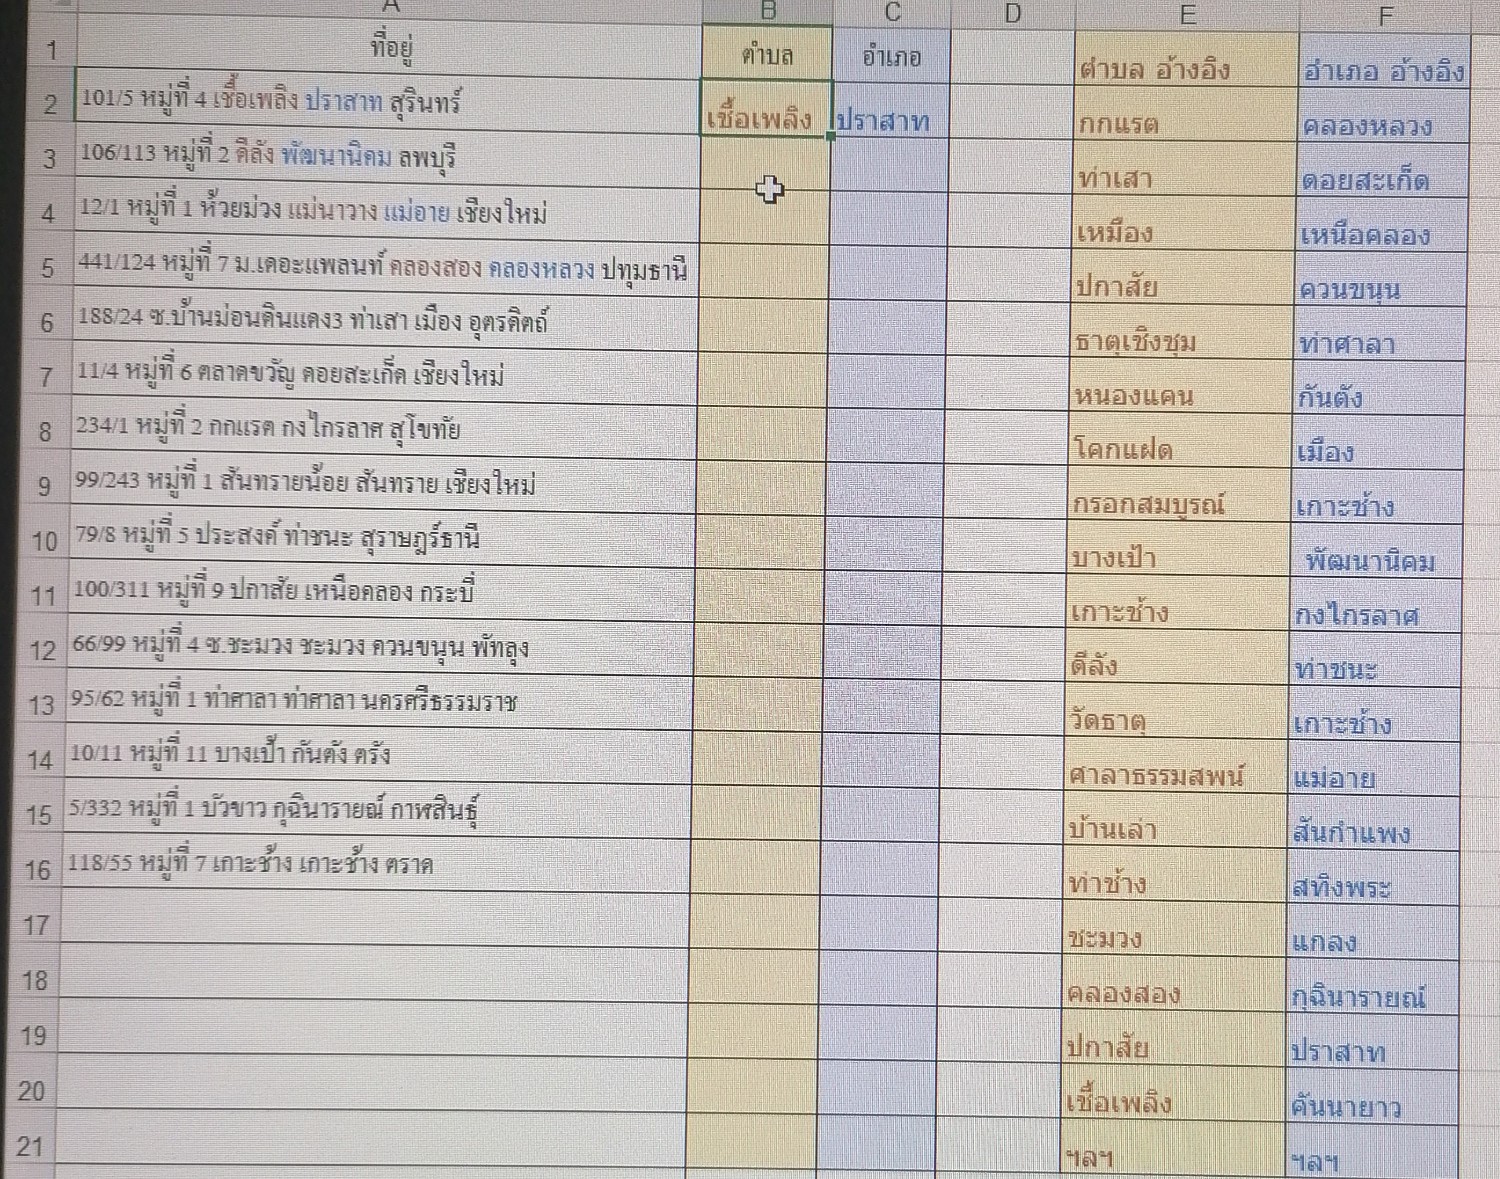 A B C D E F
1 ที่อยู่ ตำบล อำเภอ ตำบล อ้างอิง อำเภอ อ้างอิง
2 101/5 หมู่ที่ 4 เชื้อเพลิง ปราสาท สุรินทร์ เชื้อเพลิง ปราสาท กกแรต คลองหลวง
3 106/113 หมู่ที่ 2 ดีลัง พัฒนานิคม ลพบุรี ท่าเสา ดอยสะเก็ด
4 12/1 หมู่ที่ 1 ห้วยม่วง แม่นาวาง แม่อาย เชียงใหม่ เหมือง เหนือคลอง
5 441/124 หมู่ที่ 7 ม.เดอะแพลนท์ คลองสอง คลองหลวง ปทุมธานี ปกาสัย ควนขนุน
6 188/24 ซ.บ้านม่อนดินแดง3 ท่าเสา เมือง อุตรดิตถ์ ธาตุเชิงชุม ท่าศาลา
7 11/4 หมู่ที่ 6 ตลาดขวัญ ดอยสะเก็ด เชียงใหม่ หนองแคน กันตัง
8 234/1 หมู่ที่ 2 กกแรต กงไกรลาศ สุโขทัย โคกแฝด เมือง
9 99/243 หมู่ที่ 1 สันทรายน้อย สันทราย เชียงใหม่ กรอกสมบูรณ์ เกาะช้าง
10 79/8 หมู่ที่ 5 ประสงค์ ท่าชนะ สุราษฎร์ธานี บางเป้า พัฒนานิคม
11 100/311 หมู่ที่ 9 ปกาสัย เหนือคลอง กระบี่ เกาะช้าง กงไกรลาศ
12 66/99 หมู่ที่ 4 ซ.ชะมวง ชะมวง ควนขนุน พัทลุง ดีลัง ท่าชนะ
13 95/62 หมู่ที่ 1 ท่าศาลา ท่าศาลา นครศรีธรรมราช วัดธาตุ เกาะช้าง
14 10/11 หมู่ที่ 11 บางเป้า กันตัง ตรัง ศาลาธรรมสพน์ แม่อาย
15 5/332 หมู่ที่ 1 บัวขาว กุฉินารายณ์ กาฬสินธุ์ บ้านเล่า สันกำแพง
16 118/55 หมู่ที่ 7 เกาะช้าง เกาะช้าง ตราด ท่าช้าง สทิงพระ
17 ชะมวง แกลง
18 คลองสอง กุฉินารายณ์
19 ปกาสัย ปราสาท
20 เชื้อเพลิง คันนายาว
21 ฯลฯ ฯลฯ